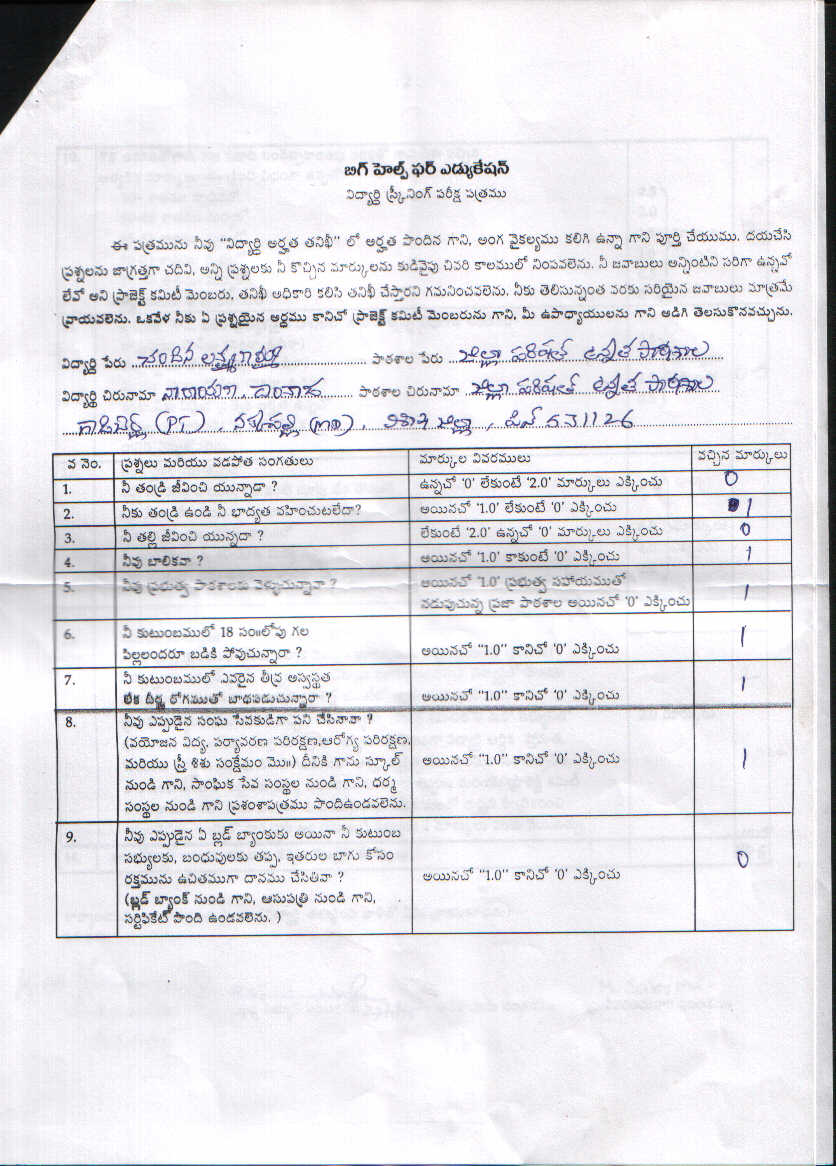 బిగ్ హెల్ప్ ఫర్ ఎడ్యుకేషన్
విద్యార్థి స్క్రీనింగ్ పరీక్ష పత్రము
ఈ పత్రమును నీవు "విద్యార్థి అర్హత తనిఖీ" లో అర్హత పొందిన గాని, అంగ వైకల్యము కలిగి ఉన్నా గాని పూర్తి చేయుము. దయచేసి
ప్రశ్నలను జాగ్రత్తగా చదివి, అన్ని ప్రశ్నలకు నీ కొచ్చిన మార్కులను కుడివైపు చివరి కాలములో నింపవలెను. నీ జవాబులు అన్నింటిని సరిగా ఉన్నవో
లేవో అని ప్రాజెక్ట్ కమిటీ మెంబరు, తనిఖీ అధికారి కలిసి తనిఖీ చేస్తారని గమనించవలెను. నీకు తెలిసున్నంత వరకు సరియైన జవాబులు మాత్రమే
వ్రాయవలెను. ఒకవేళ నీకు ఏ ప్రశ్నయైన అర్ధము కానిచో ప్రాజెక్ట్ కమిటీ మెంబరును గాని, మీ ఉపాధ్యాయులను గాని అడిగి తెలసుకొనవచ్చును.
విద్యార్థి పేరు పాఠశాల పేరు జిల్లా పరిషత్ ఉన్నత పాఠశాల
విద్యార్థి చిరునామా పాఠశాల చిరునామా జిల్లా పరిషత్ ఉన్నత పాఠశాల
(PT), (MD), విశాఖ జిల్లా, పిన్ 531126
వ నెం. ప్రశ్నలు మరియు వడపోత సంగతులు మార్కుల వివరములు వచ్చిన మార్కులు
1. నీ తండ్రి జీవించి యున్నాడా ? ఉన్నచో '0' లేకుంటే '2.0' మార్కులు ఎక్కించు 0
2. నీకు తండ్రి ఉండి నీ భాద్యత వహించుటలేదా? అయినచో '1.0' లేకుంటే '0' ఎక్కించు 1
3. నీ తల్లి జీవించి యున్నదా ? లేకుంటే '2.0' ఉన్నచో '0' మార్కులు ఎక్కించు 0
4. నీవు బాలికవా ? అయినచో '1.0' కాకుంటే '0' ఎక్కించు 1
5. నీవు ప్రభుత్వ పాఠశాలకు వెళ్ళుచున్నావా ? అయినచో '1.0' ప్రభుత్వ సహాయముతో
నడుపుచున్న ప్రజా పాఠశాల అయినచో '0' ఎక్కించు 1
6. నీ కుటుంబములో 18 సం॥లోపు గల
పిల్లలందరూ బడికి పోవుచున్నారా ? అయినచో "1.0" కానిచో '0' ఎక్కించు 1
7. నీ కుటుంబములో ఎవరైన తీవ్ర అస్వస్థత
లేక దీర్ఘ రోగముతో బాధపడుచున్నారా ? అయినచో "1.0" కానిచో '0' ఎక్కించు 1
8. నీవు ఎప్పుడైన సంఘ సేవకుడిగా పని చేసినావా ?
(వయోజన విద్య, పర్యావరణ పరిరక్షణ,ఆరోగ్య పరిరక్షణ,
మరియు స్త్రీ శిశు సంక్షేమం మొ॥) దీనికి గాను స్కూల్ అయినచో "1.0" కానిచో '0' ఎక్కించు 1
నుండి గాని, సాంఘిక సేవ సంస్థల నుండి గాని, ధర్మ
సంస్థల నుండి గాని ప్రశంశాపత్రము పొందిఉండవలెను.
9. నీవు ఎప్పుడైన ఏ బ్లడ్ బ్యాంకుకు అయినా నీ కుటుంబ
సభ్యులకు, బంధువులకు తప్ప, ఇతరుల బాగు కోసం
రక్తమును ఉచితముగా దానము చేసితివా ? అయినచో "1.0" కానిచో '0' ఎక్కించు 0
(బ్లడ్ బ్యాంక్ నుండి గాని, ఆసుపత్రి నుండి గాని,
సర్టిఫికేట్ పొంది ఉండవలెను. )